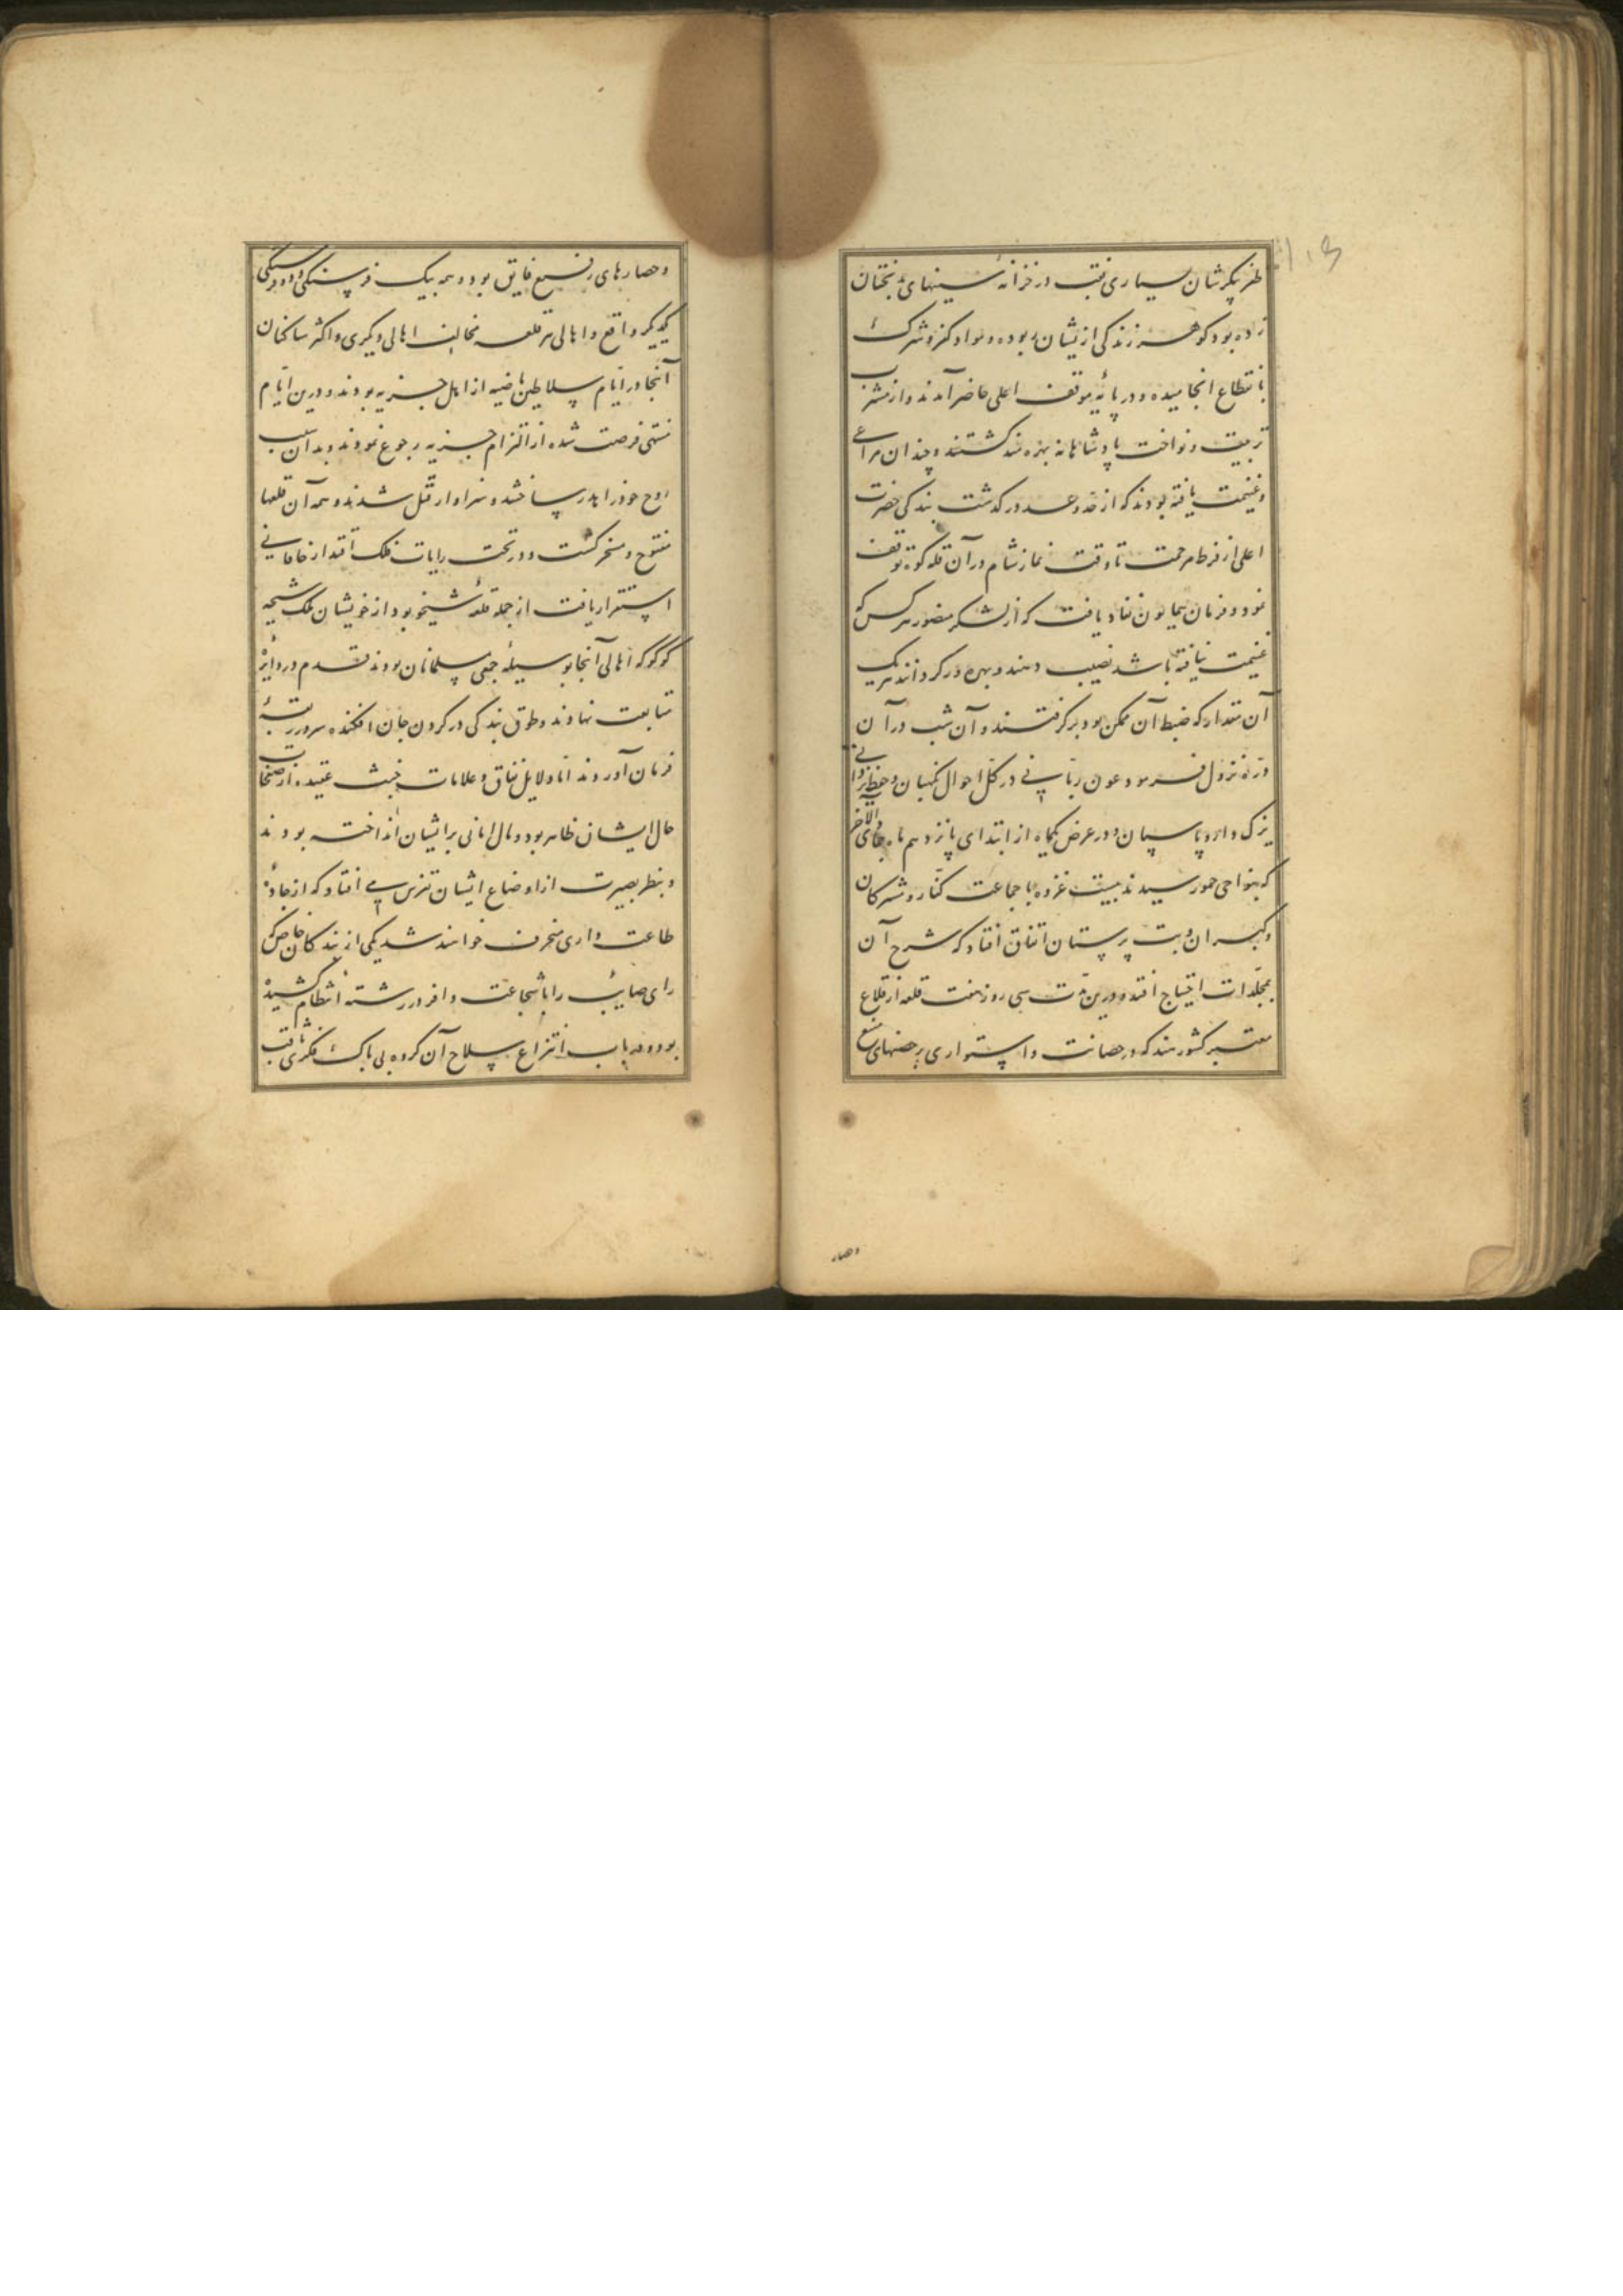 ظفر پیکرشان بسیاری نقب در خزانه سینهای بدبختان
زده بود گوهر زندگی ازیشان ربوده و مواد کفر و شرک
بانقطاع انجامیده و در پایه موقف اعلی حاضر آمدند و از مشرب
تربیت و نواخت پادشاهانه بهره مند گشتند و چندان مراعی
و غنیمت یافته بودند که از حد و عد در گذشت بندگی حضرت
اعلی از فرط مرحمت تا وقت نماز شام در آن قله کوه توقف
نمود و فرمان همایون نفاذ یافت که از لشکر منصور هر کس که
غنیمت نیافته باشد نصیب دهند و بهره ور گردانند هر یک
آن مقدار که ضبط آن ممکن بود بر گرفتند و آن شب در آن
دره نزول فرمود عون ربانی در کل احوال نگهبان و حفظ یزدانی
یزک دار و پاسبان و در عرض یکماه از ابتدای پانزدهم ماه جمادی الآخر
که بنواحی جمو رسیدند بیست غزوه با جماعت کفار و مشرکان
و گبران و بت پرستان اتفاق افتاد که شرح آن
بمجلدات احتیاج افتد و درین مدت سی روز هفت قلعه از قلاع
معتبر کشور هند که در حصانت و استواری بر حصنهای منیع
وحصار
و حصارهای رفیع فایق بود و همه بیک فرسنگی و دو فرسنگی
یکدیگر واقع و اهالی هر قلعه مخالف اهالی دیگری و اکثر ساکنان
آنجا در ایام سلاطین ماضیه از اهل جزیه بودند و درین ایام
منتهی فرصت شده از التزام جزیه رجوع نمودند و بدان سبب
روح خود را هدر ساختند و سزاوار قتل شدند و همه آن قلعها
مفتوح و مسخر گشت و در تحت رایات فلک اقتدار خاقانی
استقرار یافت از جمله قلعه شیخو بود از خویشان ملک شیخه
کوکر که اهالی آنجا بوسیله جمعی مسلمانان بودند قدم در دایره
متابعت نهادند و طوق بندگی در گردن جان افکنده سر در ربقه
فرمان آوردند اما دلایل نفاق و علامات خبث عقیده از صفحات
حال ایشان ظاهر بود و مال امانی بر ایشان انداخته بودند
و بنظر بصیرت از اوضاع ایشان تفرس می افتاد که از جاده
طاعت داری منحرف خواهند شد یکی از بندگان خاص که
رای صایب را با شجاعت وافر در رشته انتظام کشیده
بود و در باب انتزاع سلاح آن گروه بی باک فکری ثاقب